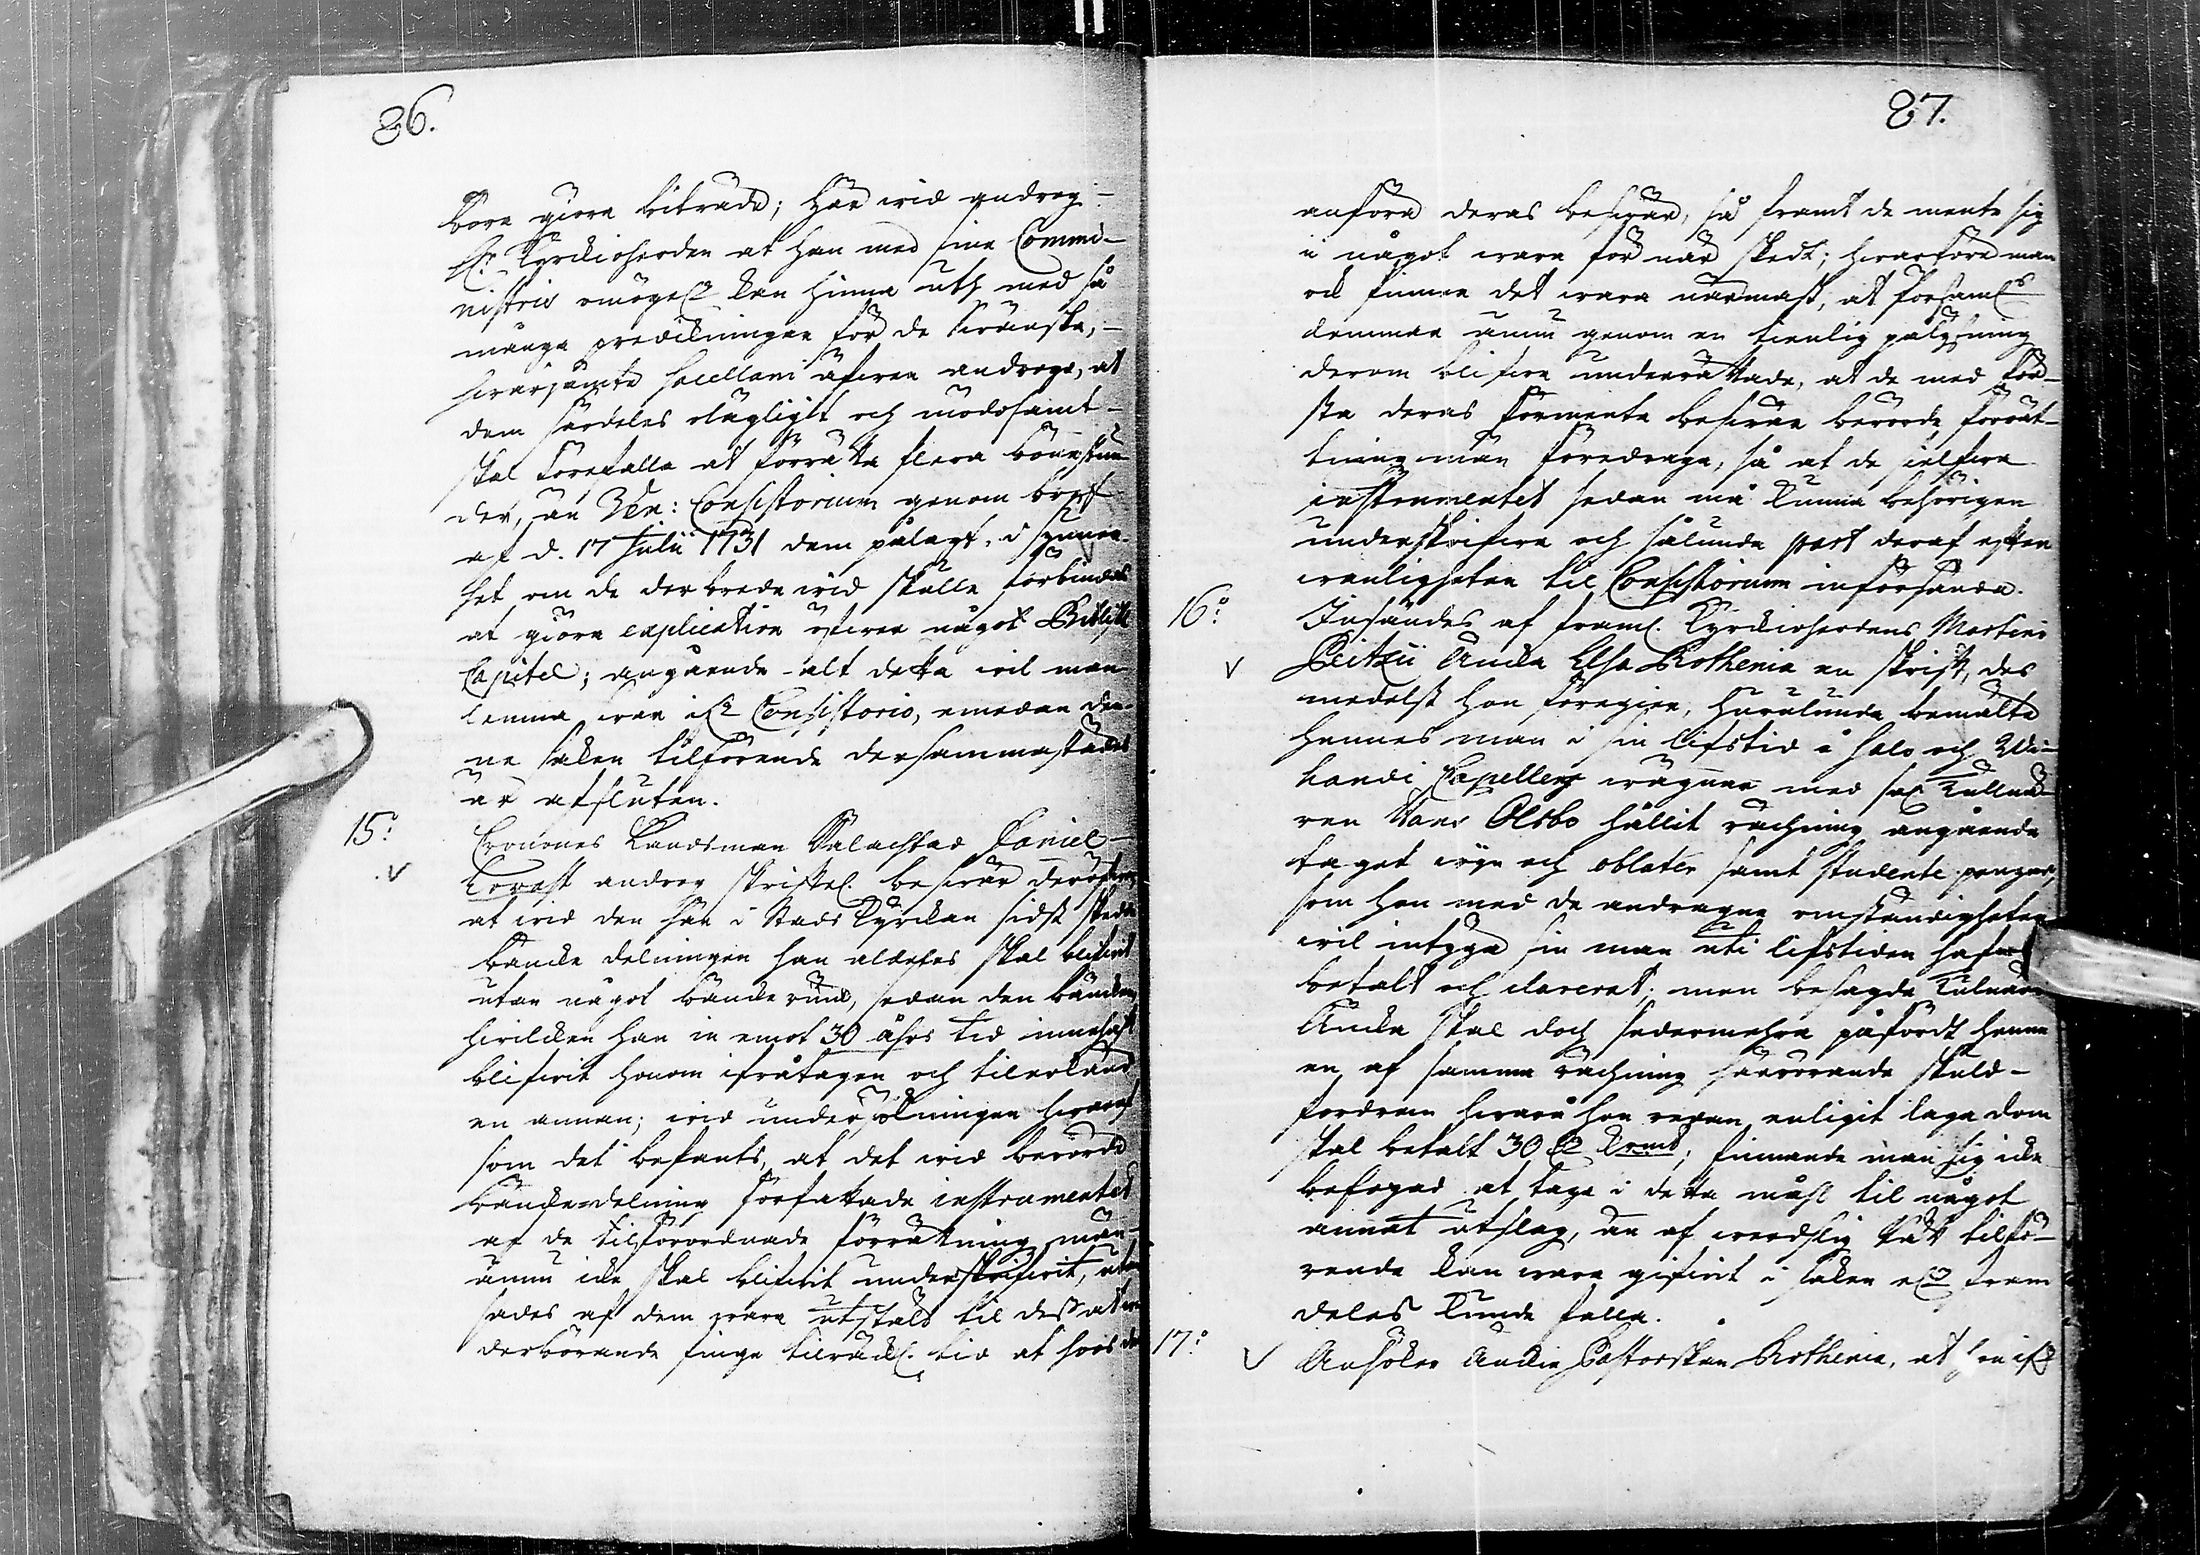 86.
böra giöra biträde; Här wid androg
H:r Kyrckioherden at han med sine Commi-
nistris omögel. kan hinna uth med så
många predikningar för de Swänska,
hwarjämte Sacellani äfwen androge, at
dem särdeles olägligit och mödosamt
skal förefalla at förrätta flera bönestun-
der, än Ven: Consistorium genom bref
af d. 17 Julii 1731 dem pålagt, i synner-
het om de derbrede wid skulle förbindas
at giöra explication öfwer något Bibliskt
Capitel; angående alt detta wil man
lemna Consistorio, emedan den-
ne saken tilförende dersammastädes
är afsluten.
15:o
Cronones Landsman Wälachtad Daniel
Krook androg skriftel. beswär deröfwer,
at wid den här i Stads Kyrckan sidst skedde
bäncke delningen han aldeles skal blifwit
utan något bänckerum, sedan den bäncken
hwilcken han in emot 30 åhrs tid innehaft
blifwit honom ifråtagen och tilerkänd
en annan; wid undersökningen hwaraf
som det befants, at det wid berörde
bänckedelning författade instrumentet
af de tilförordnade förrättningsmän
ännu icke skal blifwit underskrifwit, utan
sades af dem wara utstält til dess at
derbörande finge tilräckl. tid at hos
87.
anföra deras beswär, så framt de mente sig
i något wara för när skedt; hwarföre man
ock finner det wara närmast, at församl:s
lemmar ännu genom en tienlig pålysning
derom blifwa underrättade, at de med för-
sta deras förmente beswär berörde förrät-
tningsmän föredraga, så at de sielfwa
instrumentet sedan må kunna behörigen
underskrifwa och sålunda part deraf efter
wanligheten til Consistorium införsända.
16:o
Insändes af framl. Kyrckioherdens Martini
Peitzii Äncka Elsa Rothenia en skrift, der
medelst hon föregier, hurulunda bemälte
hennes man i sin lifstid å Salo och Wi-
handi Capellers wägnar med sal. Tullnä-
ren Hans Olsbo hållit räckning angående
taget wijn och oblater samt studente pengar,
som hon med de andragne omständigheter
wil intyga sin man uti lifstiden hafwa
betalt och clarerat; men besagde Tulnärs
Äncka skal doch sedermehra påfördt henne
en af samma räckning härrörande skuld-
fordran hwarå hon redan enligit laga dom
skal betalt 30 Krmt; finnande man sig icke
befogad at taga i detta måhl til något
annat utslag, än af werdslig rätt tilfö-
rende kan wara gifwit i saken fram
deles kunde falla.
17:o
Ansöker Äncke Pastorskan Rothenia, at